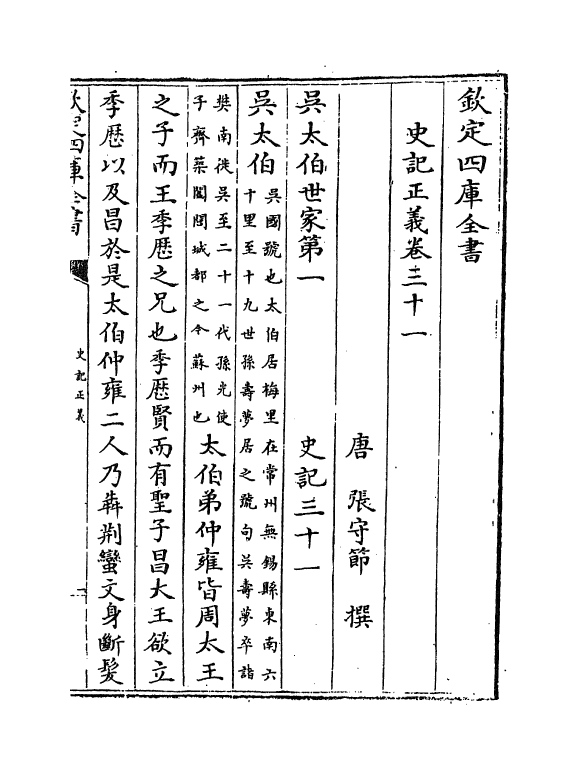 欽定四庫全書
史記正義卷三十一
唐 張守節 撰
吳太伯世家第一 史記三十一
吳太伯
吳國號也太伯居梅里在常州無錫縣東南六
十里至十九世孫壽夢居之號句吳壽夢卒諸
樊南徙吳至二十一代孫光使
子胥築闔閭城都之今蘇州也
太伯弟仲雍皆周太王
之子而王季歴之兄也季歴賢而有聖子昌大王欲立
季歴以及昌於是太伯仲雍二人乃犇荆蠻文身斷髮
欽定四庫全書
史記正義